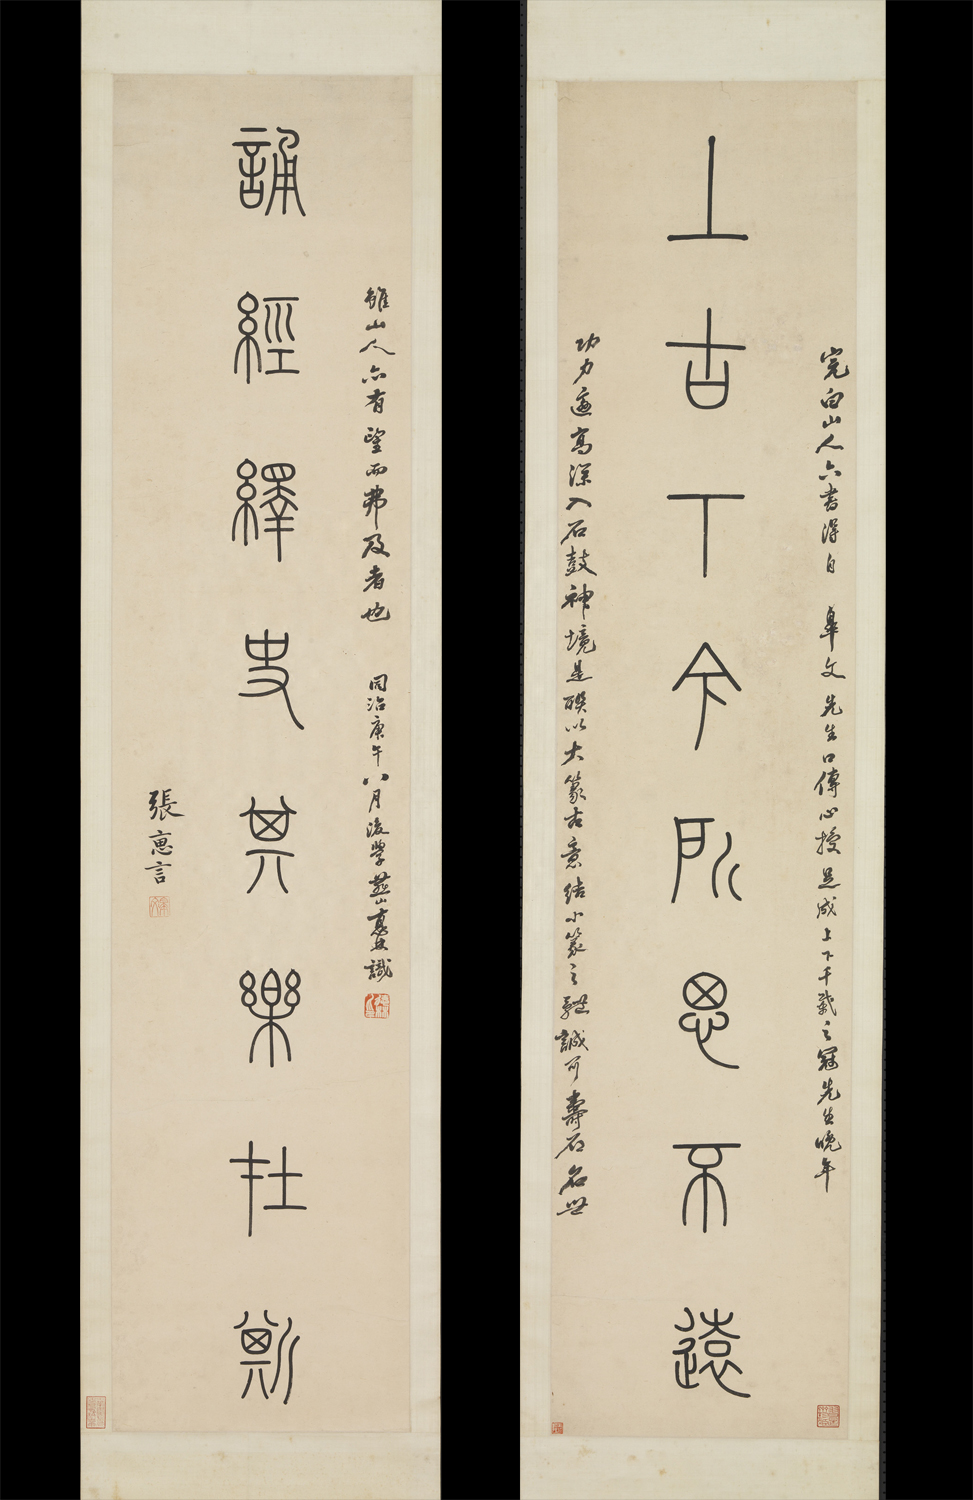 完白山人六書得自 皋文先生口傳心授是成上下千載之冠先生晚年
上古下今所思不遠
功力高深入石鼓神境是聯以大篆古意結小篆之體誠可壽石名世
雖山人亦有望而弗及者也 同治庚午八月後學燕山識
誦經繹史其樂在斯
張惠言